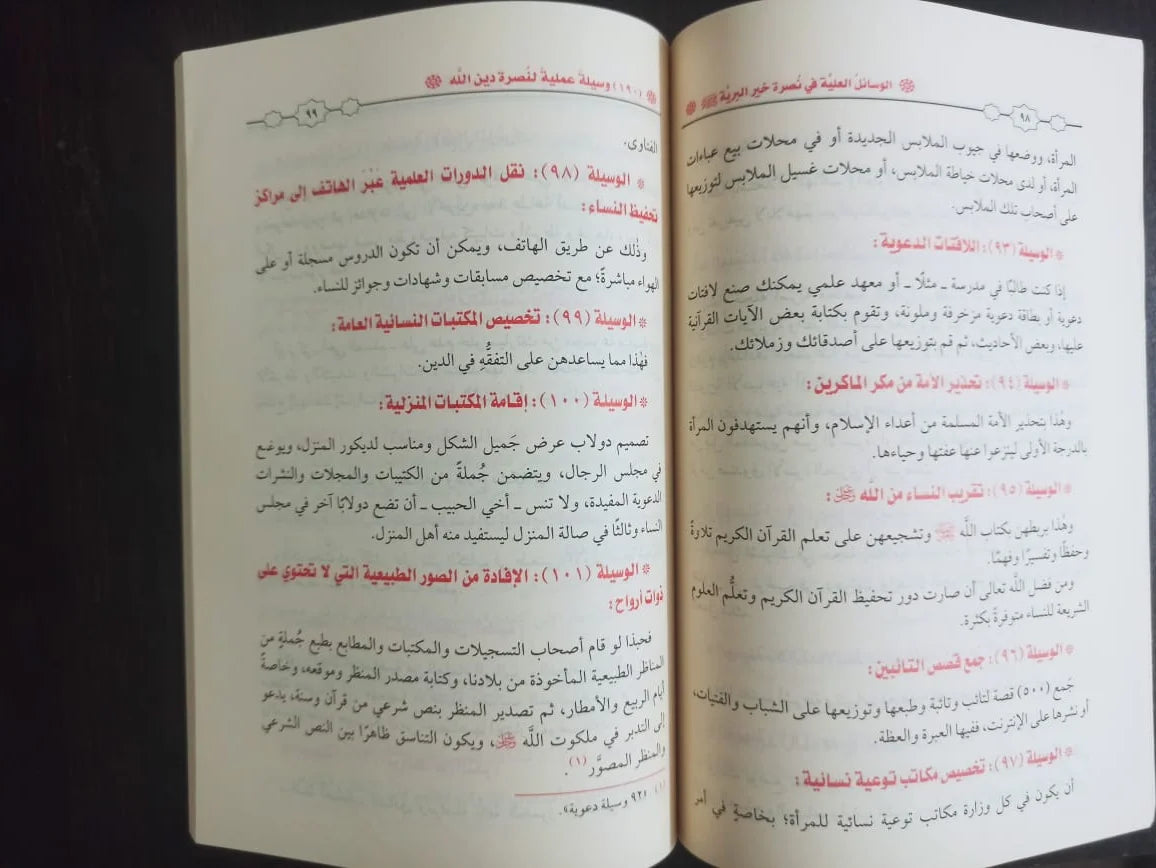 الوسائل العليَّة في نُصرة خير البريَّة ﷺ
٩٨
المرأة، ووضعها في جيوب الملابس الجديدة أو في محلات بيع عباءات
المرأة، أو لدى محلات خياطة الملابس، أو محلات غسيل الملابس لتوزيعها
على أصحاب تلك الملابس.
* الوسيلة (٩٣): اللافتات الدعوية:
إذا كنت طالبًا في مدرسة ـ مثلًا ـ أو معهد علمي يمكنك صنع لافتات
دعوية أو بطاقة دعوية مزخرفة وملونة، وتقوم بكتابة بعض الآيات القرآنية
عليها، وبعض الأحاديث، ثم قم بتوزيعها على أصدقائك وزملائك.
* الوسيلة (٩٤): تحذير الأمة من مكر الماكرين:
وهٰذا بتحذير الأمة المسلمة من أعداء الإسلام، وأنهم يستهدفون المرأة
بالدرجة الأولى لينزعوا عنها عفتها وحياءها.
* الوسيلة (٩٥): تقريب النساء من اللَّه ﷻ:
وهٰذا بربطهن بكتاب اللَّه ﷻ وتشجيعهن على تعلم القرآن الكريم تلاوةً
وحفظًا وتفسيرًا وفهمًا.
ومن فضل اللَّه تعالى أن صارت دور تحفيظ القرآن الكريم وتعلُّم العلوم
الشريعة للنساء متوفرةً بكثرة.
* الوسيلة (٩٦): جمع قصص التائبين:
جَمع (٥٠٠) قصة لتائب وتائبة وطبعها وتوزيعها على الشباب والفتيات،
أو نشرها على الإنترنت، ففيها العبرة والعظة.
* الوسيلة (٩٧): تخصيص مكاتب توعية نسائية:
أن يكون في كل وزارة مكاتب توعية نسائية للمرأة؛ بخاصةٍ في أمر
(١٩٠) وسيلةً عمليةً لنُصرة دين اللَّه
٩٩
الفتاوى.
* الوسيلة (٩٨): نقل الدورات العلمية عَبْرَ الهاتف إلى مراكز
تحفيظ النساء:
وذٰلك عن طريق الهاتف، ويمكن أن تكون الدروس مسجلة أو على
الهواء مباشرةً؛ مع تخصيص مسابقات وشهادات وجوائز للنساء.
* الوسيلة (٩٩): تخصيص المكتبات النسائية العامة:
فهٰذا مما يساعدهن على التفقُّهِ في الدين.
* الوسيلة (١٠٠): إقامة المكتبات المنزلية:
تصميم دولاب عرض جَميل الشكل ومناسب لديكور المنزل، ويوضع
في مجلس الرجال، ويتضمن جُملةً من الكتيبات والمجلات والنشرات
الدعوية المفيدة، ولا تنس ـ أخي الحبيب ـ أن تضع دولابًا آخر في مجلس
النساء وثالثًا في صالة المنزل ليستفيد منه أهل المنزل.
* الوسيلة (١٠١): الإفادة من الصور الطبيعية التي لا تحتوي على
ذوات أرواح:
فحبذا لو قام أصحاب التسجيلات والمكتبات والمطابع بطبع جُملةٍ من
المناظر الطبيعية المأخوذة من بلادنا، وكتابة مصدر المنظر وموقعه، وخاصةً
أيام الربيع والأمطار، ثم تصدير المنظر بنص شرعي من قرآن وسنة، يدعو
إلى التدبر في ملكوت اللَّه ﷻ، ويكون التناسق ظاهرًا بين النص الشرعي
والمنظر المصوَّر (١).
(١) «٩٢ وسيلة دعوية».